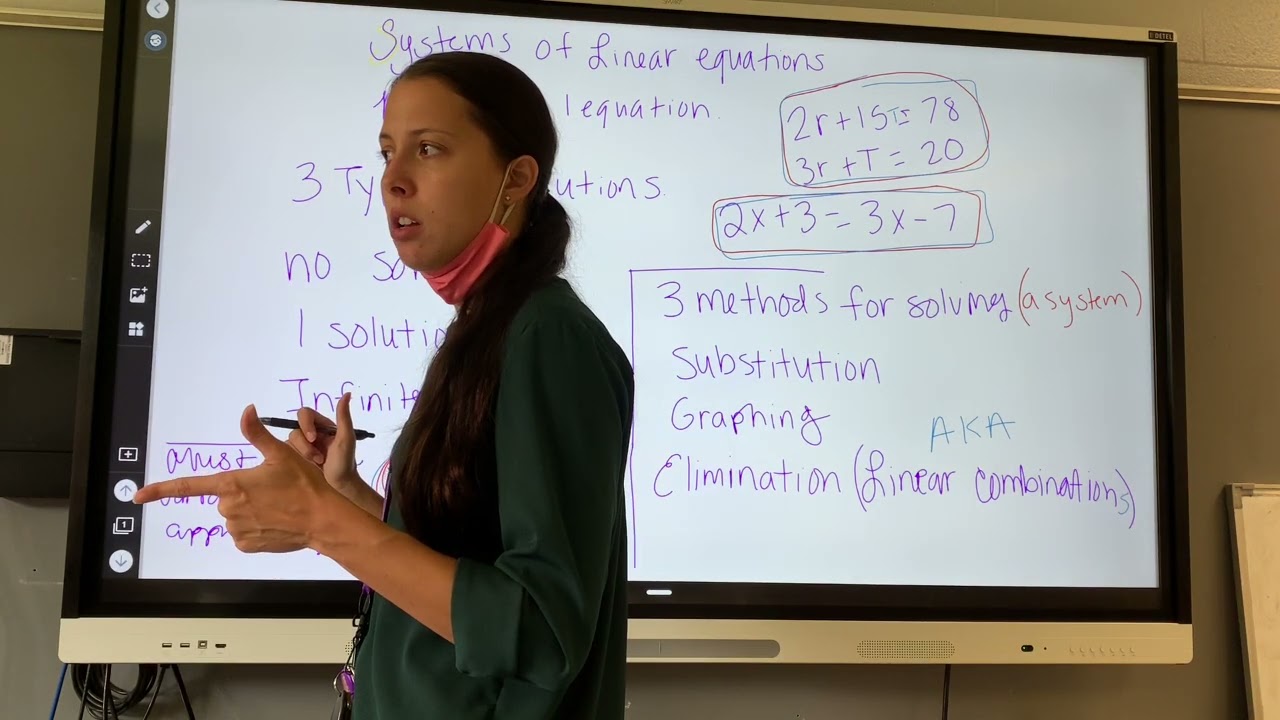 Systems of Linear equations
1 equation.
2r+15T=78
3r+T=20
2x+3=3x-7
3 Ty utions.
no so
1 solutio
Infinite
must
app
3 methods for solving (a system)
Substitution
Graphing
AKA
Elimination (Linear combinations)
1